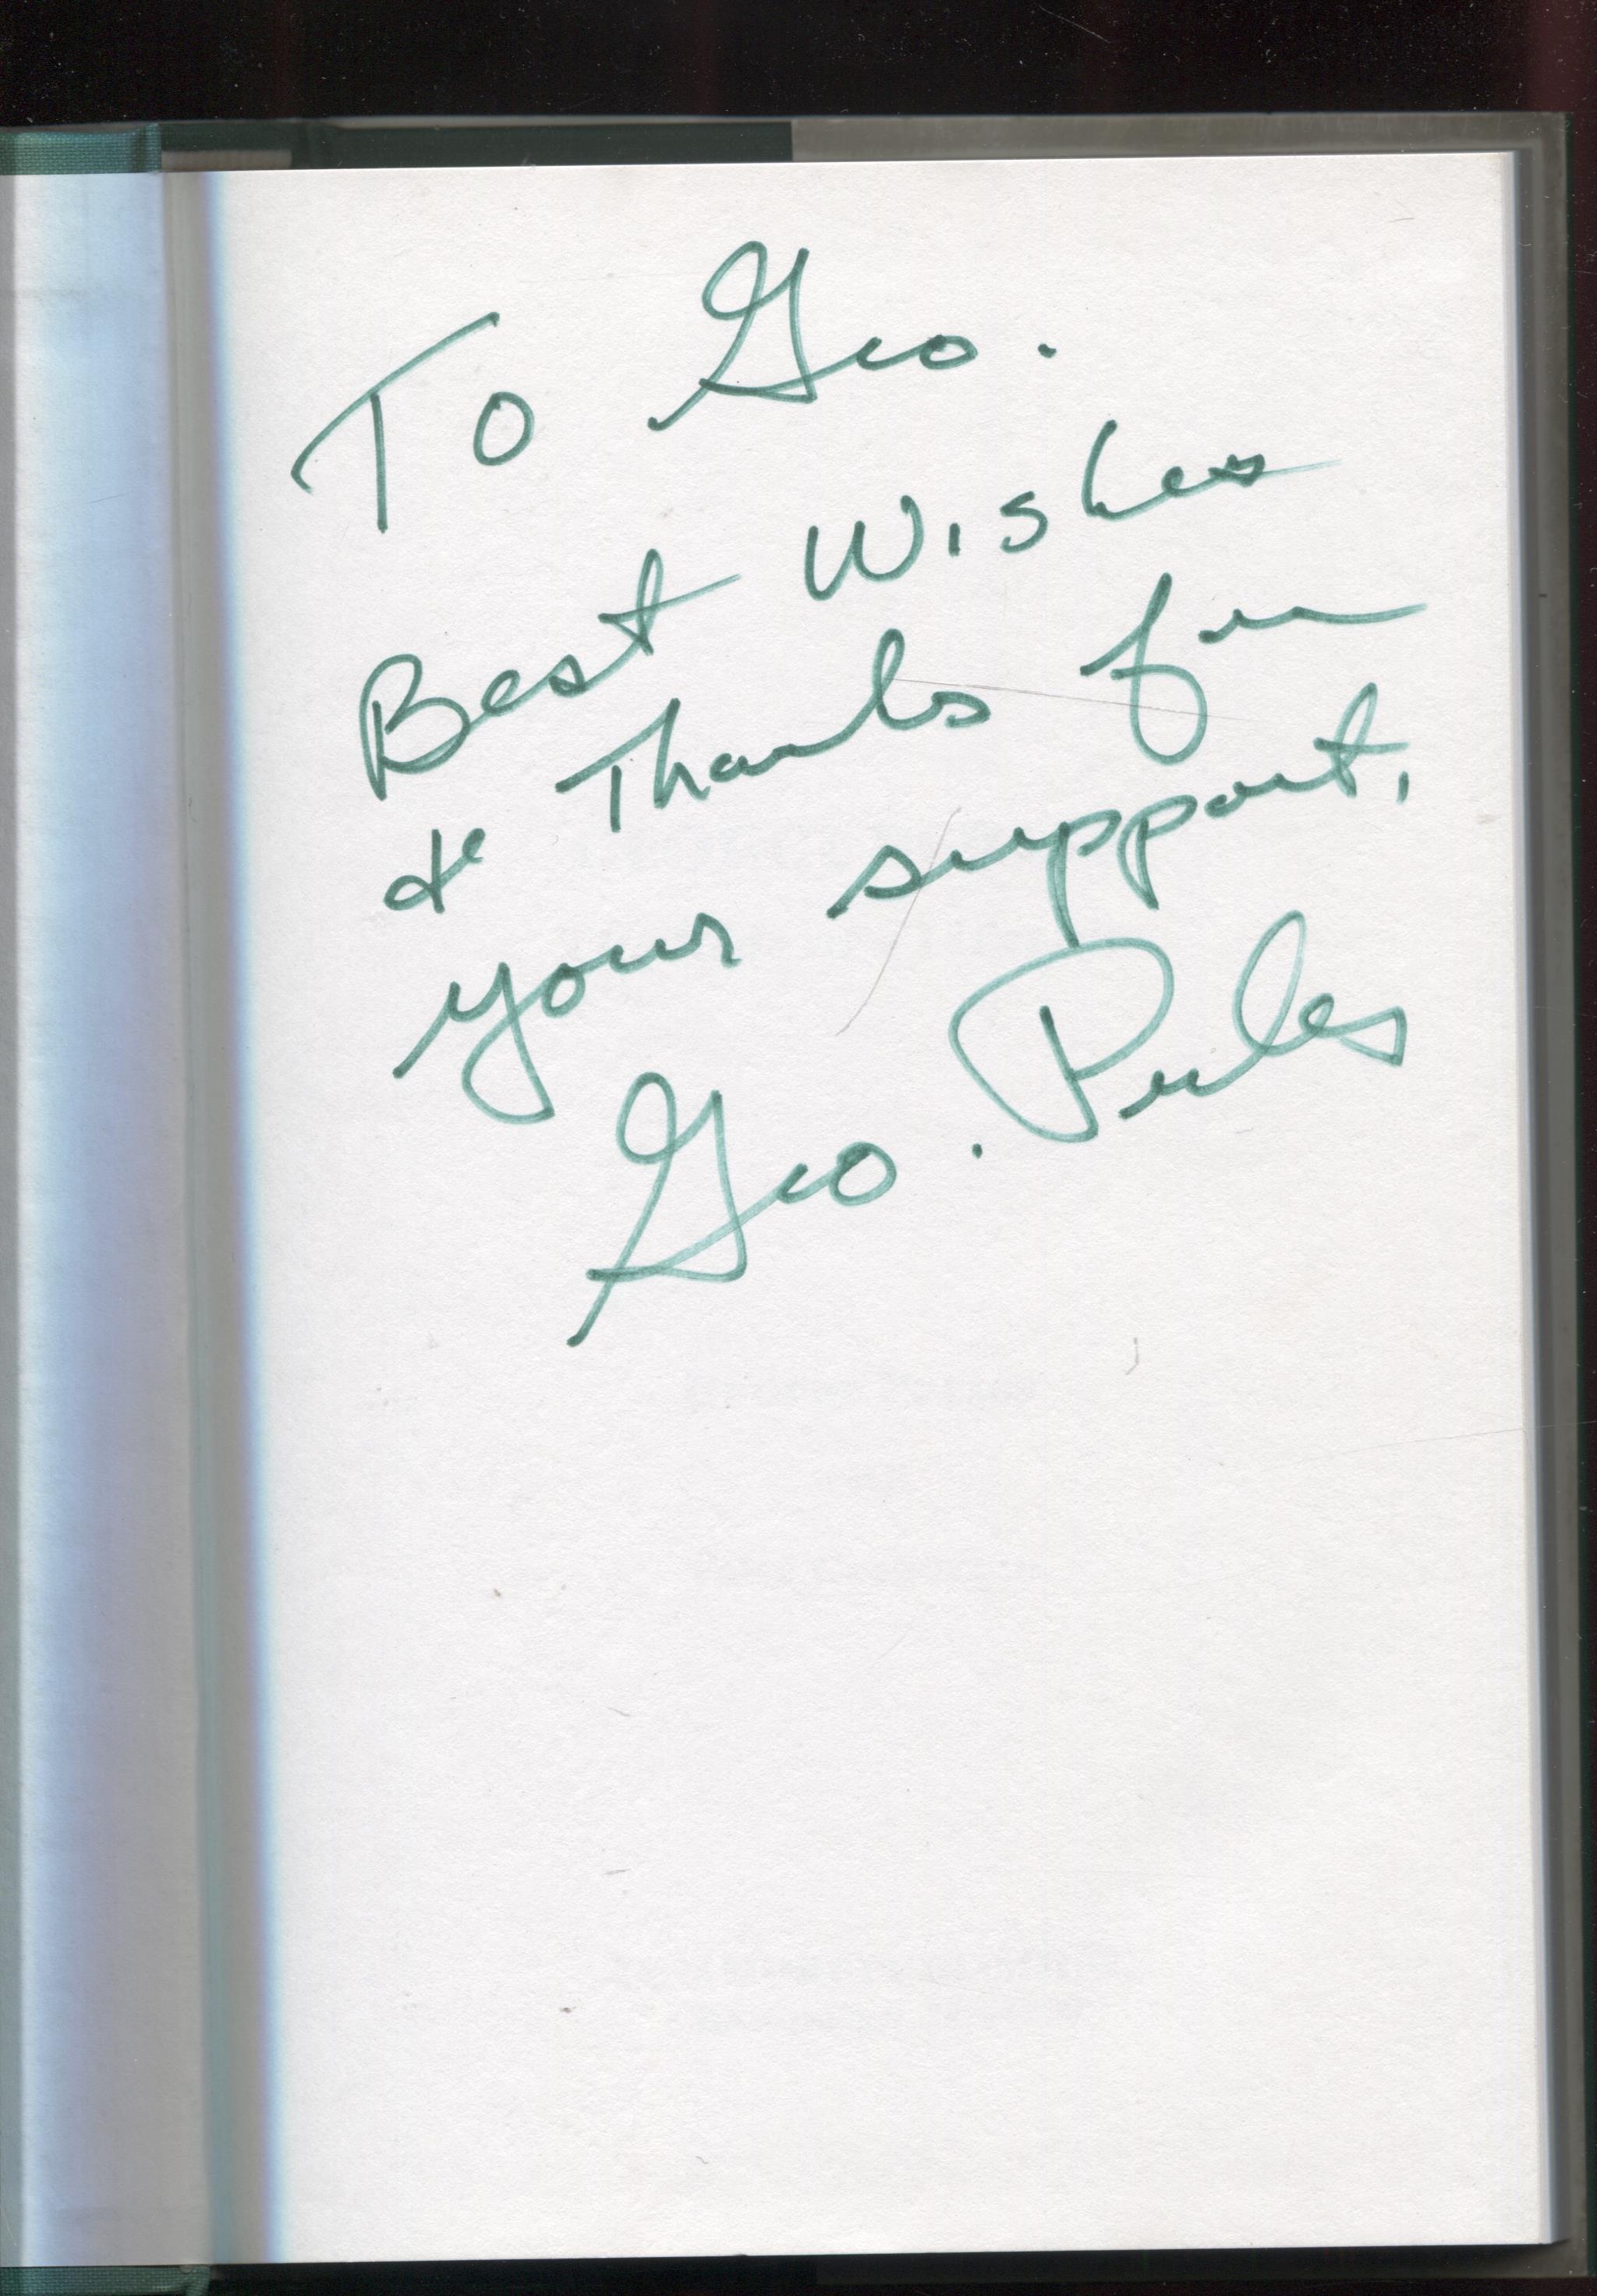 To Geo.
Best Wishes
& Thanks for
your support.
Geo. Peeles